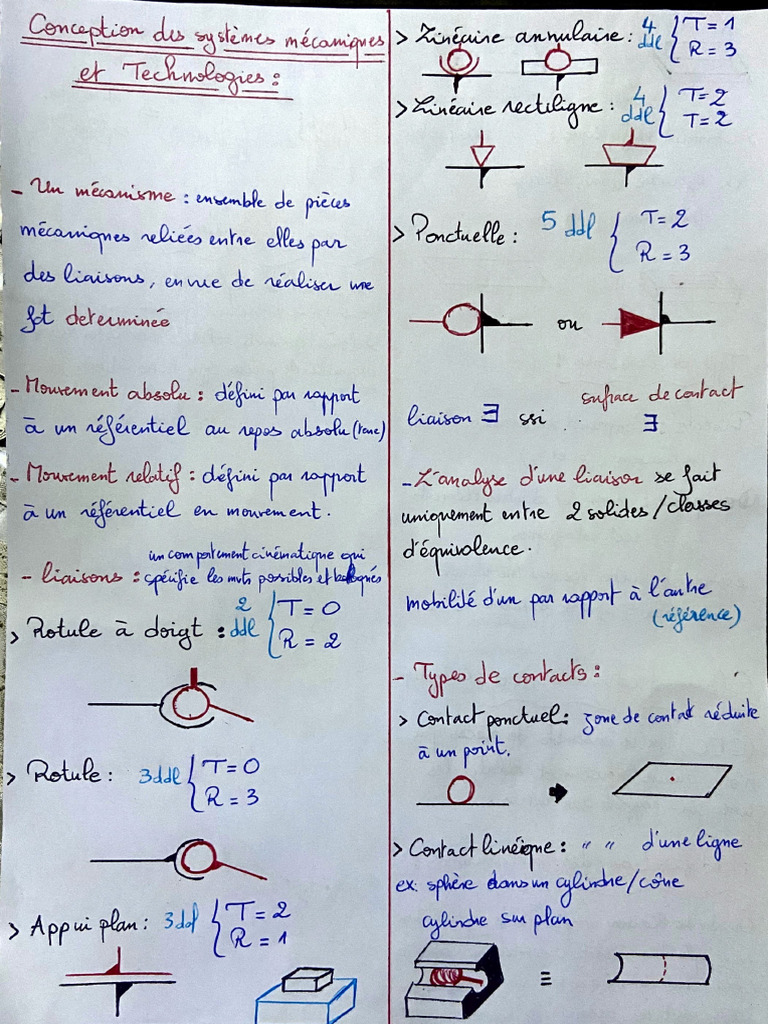 Conception des systèmes mécaniques
et Technologies :
- Un mécanisme : ensemble de pièces
mécaniques reliées entre elles par
des liaisons, en vue de réaliser une
fct determinée
- Mouvement absolu : défini par rapport
à un référentiel au repos absolu (terre)
- Mouvement relatif : défini par rapport
à un référentiel en mouvement.
- liaisons : un comportement cinématique qui
spécifie les mvts possibles et bloqués
> Rotule à doigt : 2 ddl { T = 0
R = 2
> Rotule : 3 ddl { T = 0
R = 3
> Appui plan : 3 ddl { T = 2
R = 1
> Linéaire annulaire : 4 ddl { T = 1
R = 3
> Linéaire rectiligne : 4 ddl { T = 2
T = 2
> Ponctuelle : 5 ddl { T = 2
R = 3
ou
surface de contact
liaison ∃ ssi .. ∃
- L'analyse d'une liaison se fait
uniquement entre 2 solides / classes
d'équivolence.
mobilité d'un par rapport à l'autre
(référence)
- Types de contacts :
> Contact ponctuel : zone de contat réduite
à un point.
> Contact linéique : " " d'une ligne
ex : sphère dans un cylindre / cône
cylindre sur plan
≡